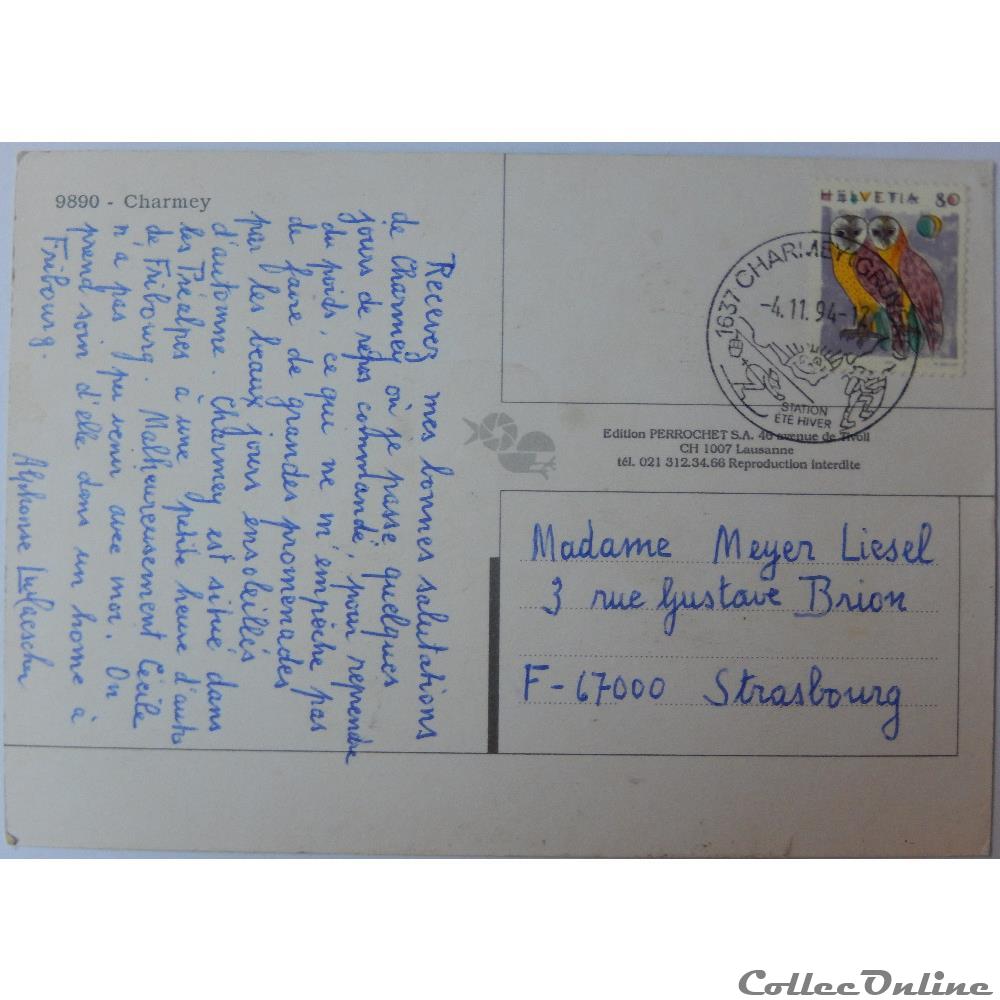 9890 - Charmey
Recevez mes bonnes salutations
de Charmey où je passe quelques
jours de repos commandé, pour reprendre
du poids, ce qui ne m'empêche pas
de faire de grandes promenades
par les beaux jours ensoleillés
d'automne. Charmey est situé dans
les Préalpes à une petite heure d'auto
de Fribourg. Malheureusement Cécile
n'a pas pu venir avec moi. On
prend soin d'elle dans un home à
Fribourg.
Alphonse
HELVETIA 80
1637 CHARMEY (GRUYÈRE)
-4.11.94-12
STATION
ÉTÉ HIVER
Edition PERROCHET S.A. 46 avenue de Tivoli
CH 1007 Lausanne
tél. 021 312.34.66 Reproduction interdite
Madame Meyer Liesel
3 rue Gustave Brion
F-67000 Strasbourg
CollecOnline